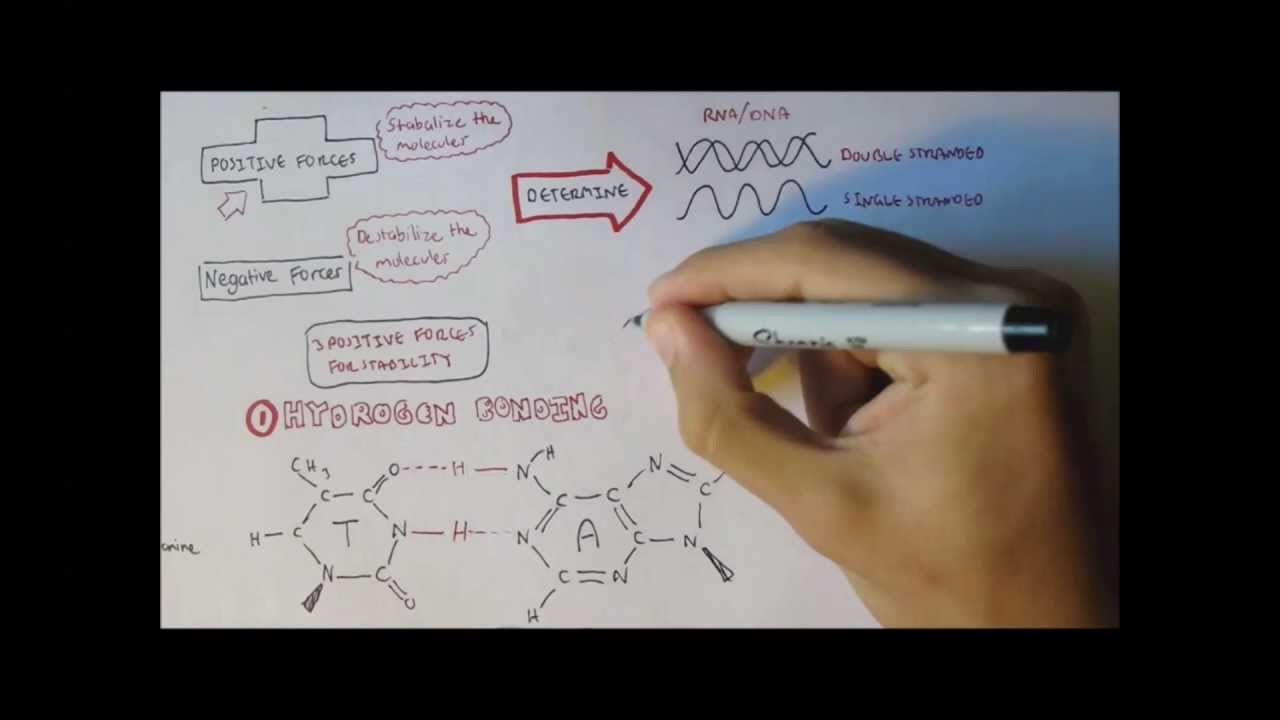 Stabalize the
molecules
POSITIVE FORCES
RNA/DNA
DOUBLE STRANDED
SINGLE STRANDED
DETERMINE
Destabilize the
molecules
Negative Forces
3 POSITIVE FORCES
FOR STABILITY
Sharpie
① HYDROGEN BONDING
CH3
O H N H
C C C C N C
H C T N H N A C N
N C C N
O
H
anine